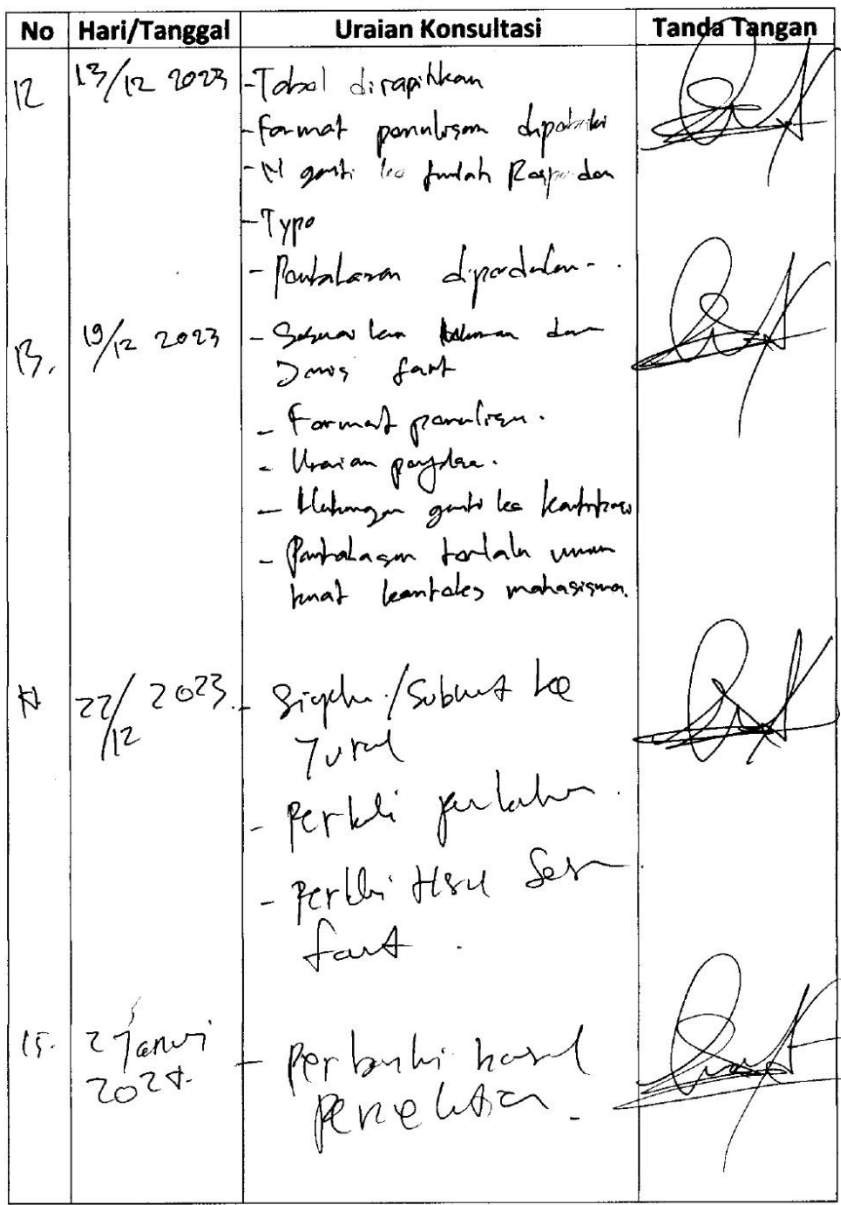 No Hari/Tanggal Uraian Konsultasi Tanda Tangan
12 13/12 2023 - Tabel dirapihkan
- Format penulisan diperbaiki
- N ganti ke Jumlah Responden
- Typo
- Pembahasan diperdalam.
13. 19/12 2023 - Sesuaikan dan
Jenis font
- Format penulisan.
- Uraian
- Hubungan ganti ke kontribusi
- Pembahasan terlalu umum
buat konteks mahasiswa.
14 22/12 2023 - /Submit ke
Jurnal
- Perbaiki
- Perbaiki
font.
15. 2 Januari 2024. - Perbaiki hasil
penelitian.